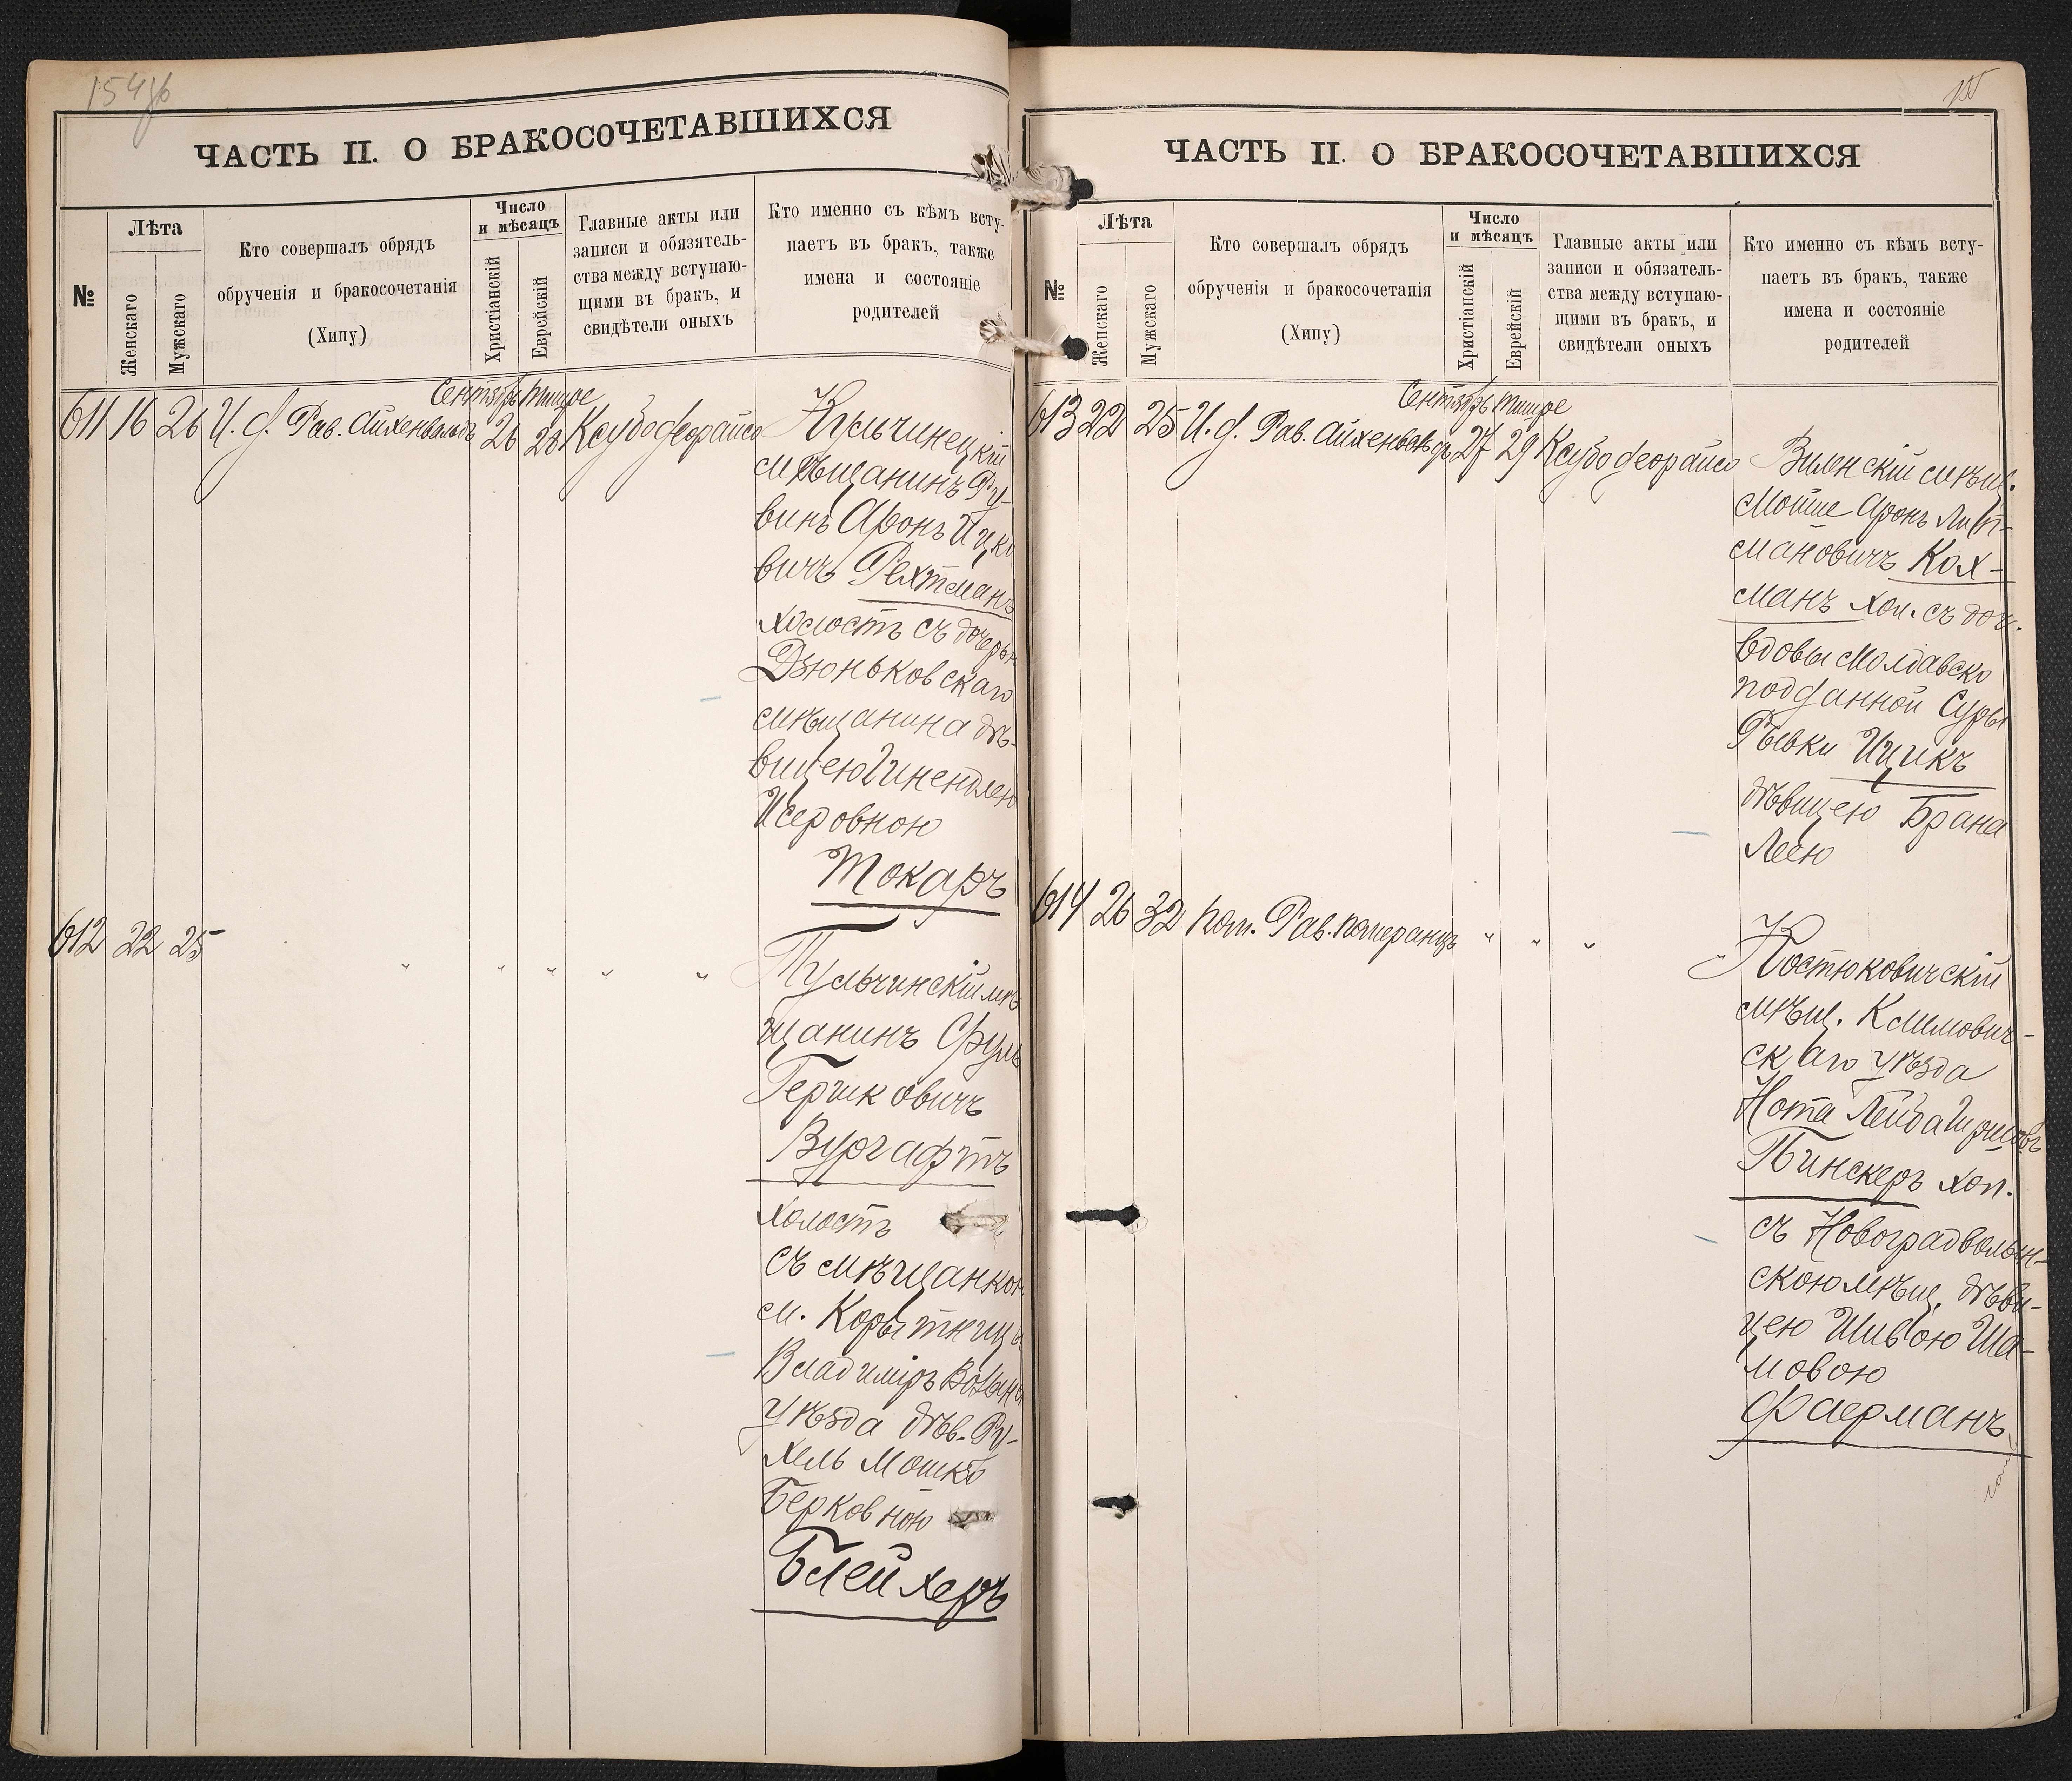 154об
ЧАСТЬ II. О БРАКОСОЧЕТАВШИХСЯ
№
Лѣта
Женскаго
Мужскаго
Кто совершалъ обрядъ
обрученія и бракосочетанія
(Хипу)
Число
и мѣсяцъ
Христіанскій
Еврейскій
Главные акты или
записи и обязятель-
ства между вступаю-
щими въ бракъ, и
свидѣтели оныхъ
Кто именно съ кѣмъ всту-
паетъ въ бракъ, также
имена и состояніе
родителей
Сентябрь Тишре
611 16 26 И. д. Рав. Айхенвальдъ 26 28 Ксубо деорайсо
Кульчинецкій
мѣщанинъ Ру-
винъ Аронъ Ицко
вичъ Рехтманъ
холостъ съ дочерью
Дзюньковскаго
мѣщанина дѣ-
вицею Гинендлею
Исеровною
Токаръ
612 22 25 " " " " "
Тульчинскій мѣ
щанинъ Сруль
Гершковичъ
Вургафтъ
холостъ
съ мѣщанкою
м. Корытницы
Владиміръ Волынс
уѣзда дѣв. Ру-
хель Мошко
Берковною
Блейхеръ
155
ЧАСТЬ II. О БРАКОСОЧЕТАВШИХСЯ
№
Лѣта
Женскаго
Мужскаго
Кто совершалъ обрядъ
обрученія и бракосочетанія
(Хипу)
Число
и мѣсяцъ
Христіанскій
Еврейскій
Главные акты или
записи и обязатель-
ства между вступаю-
щими въ бракъ, и
свидѣтели оныхъ
Кто именно съ кѣмъ всту-
паетъ въ бракъ, также
имена и состояніе
родителей
Сентябрь Тишре
613 22 25 И. д. Рав. Айхенвальдъ 27 29 Ксубо деорайсо
Виленскій мѣщ.
Мойше Аронъ Лип-
мановичъ Кох-
манъ хол. съ доч.
вдовы Молдавско
подданной Суры
Рывки Ицикъ
дѣвицею Брана
Леею
614 26 32 пом. Рав. Померанцъ " " " "
Костюковичскій
мѣщ. Климович-
скаго уѣзда
Нота Лейба Гиршовъ
Пинскеръ хол.
съ Новоградволын-
скою мѣщ. дѣви-
цею Шивою Ша-
мовою
Фаерманъ